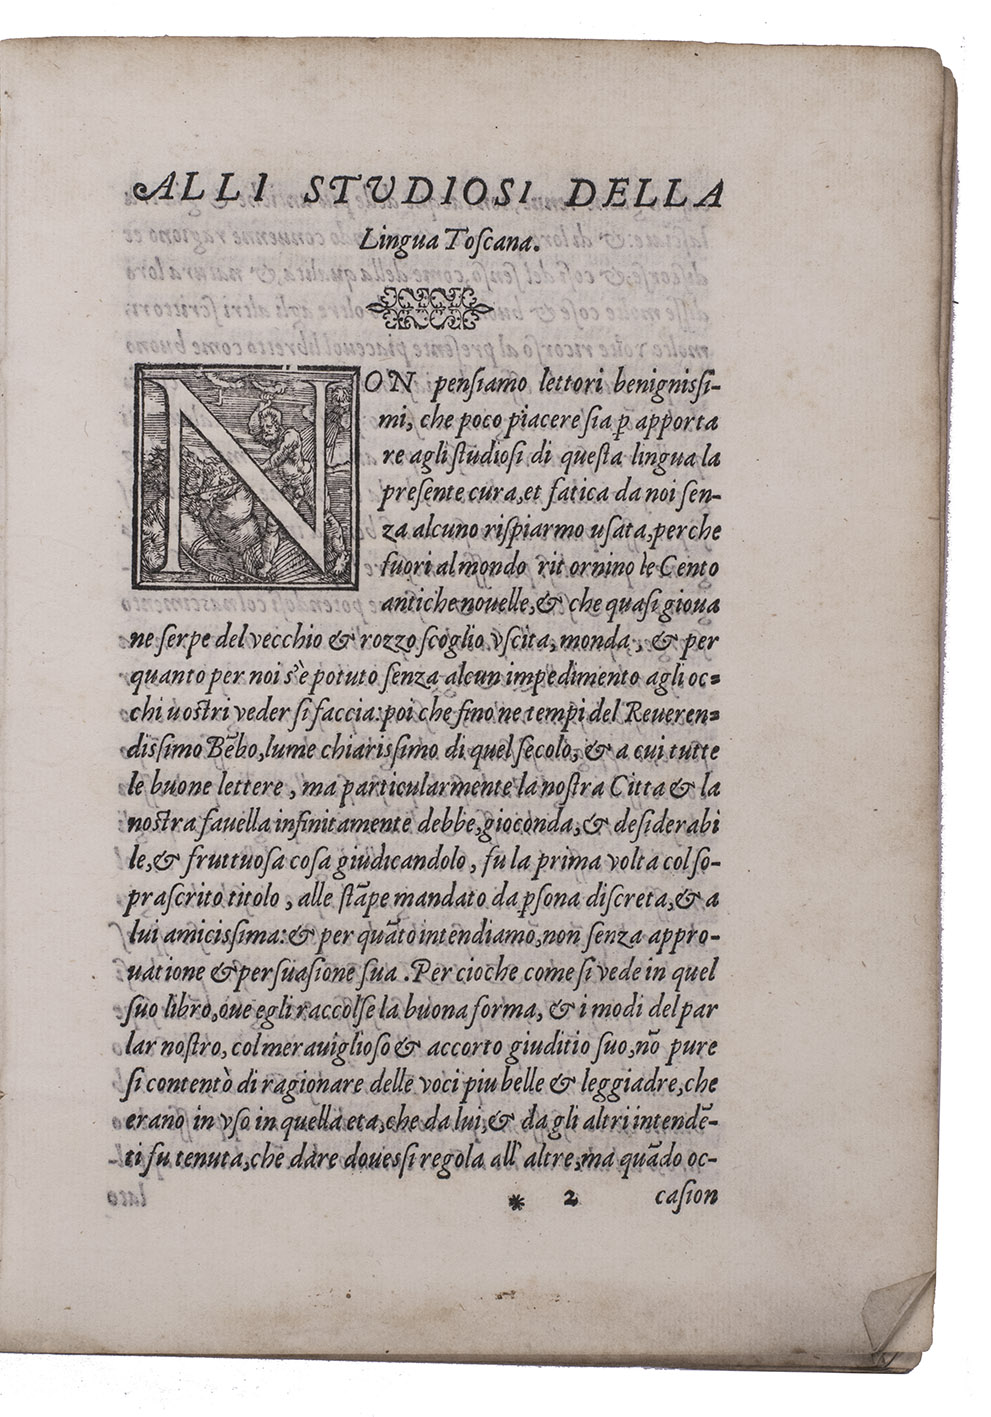 ALLI STVDIOSI DELLA
Lingua Toſcana.
NON penſiamo lettori benigniſſi-
mi, che poco piacere ſia ꝑ apporta
re agli ſtudioſi di queſta lingua la
preſente cura, et fatica da noi ſen-
za alcuno riſpiarmo uſata, perche
fuori al mondo rit ornino le Cento
antiche nouelle, & che quaſi gioua
ne ſerpe del vecchio & rozzo ſcoglio vſcita, monda, & per
quanto per noi s'è potuto ſenza alcun impedimento agli oc-
chi uoſtri veder ſi faccia: poi che fino ne tempi del Reueren-
diſſimo Bēbo, lume chiariſſimo di quel ſecolo, & a cui tutte
le buone lettere, ma particularmente la noſtra Citta & la
noſtra fauella infinitamente debbe, gioconda, & deſiderabi
le, & fruttuoſa coſa giudicandolo, fu la prima volta col ſo-
praſcrito titolo, alle ſtāpe mandato da ꝑſona diſcreta, & a
lui amiciſſima: & per quāto intendiamo, non ſenza appro-
uatione & perſuaſione ſua. Per cioche come ſi vede in quel
ſuo libro, oue egli raccolſe la buona forma, & i modi del par
lar noſtro, col merauiglioſo & accorto giuditio ſuo, nō pure
ſi contentò di ragionare delle voci piu belle & leggiadre, che
erano in vſo in quella eta, che da lui, & da gli altri intendē-
ti fu tenuta, che dare doueſſi regola all' altre, ma quādo oc-
* 2 caſion